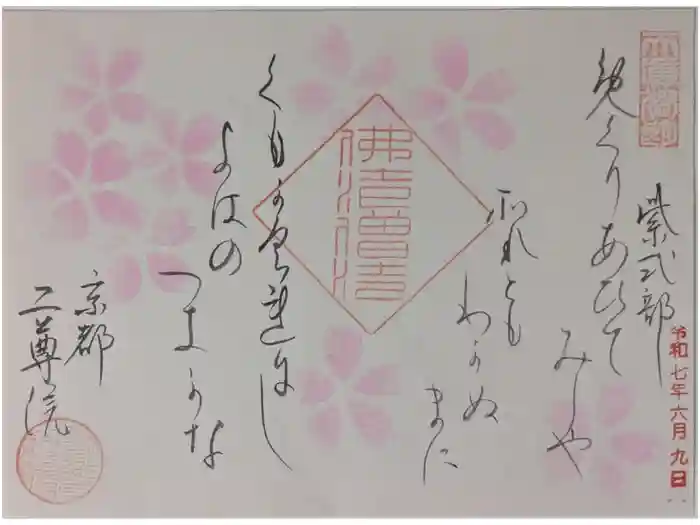 令和七年六月九日
紫式部
免くりあひて
みしや
所れとも
わかぬ
まに
くもか具連尓し
よはの
つきかな
京都
二尊院